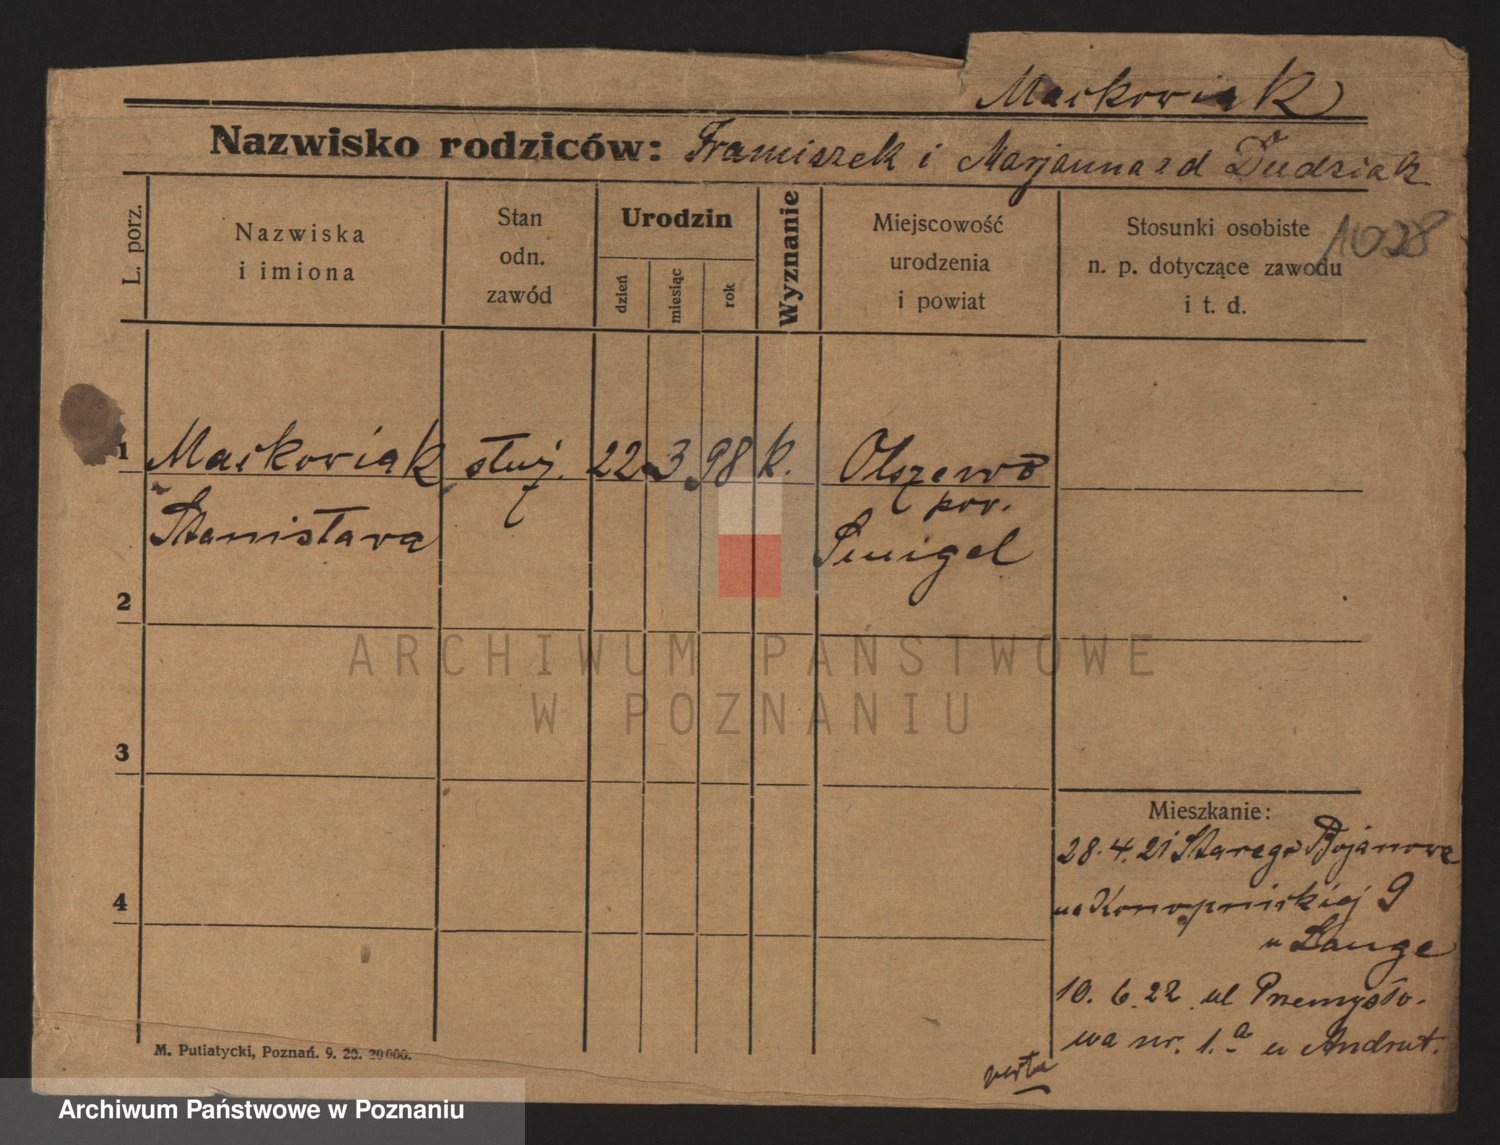 Maćkowiak
Nazwisko rodziców: Franciszek i Marjanna zd Dudziak
1028
L. porz.
Nazwiska
i imiona
Stan
odn.
zawód
Urodzin
dzień
miesiąc
rok
Wyznanie
Miejscowość
urodzenia
i powiat
Stosunki osobiste
n. p. dotyczące zawodu
i t. d.
1 Maćkowiak służ. 22 3 98 k. Olszewo
pow.
Stanisława Śmigel
2
3
4
Mieszkanie:
28.4.21 Starego Bojanowa
na Konopnickiej 9
u Lange
10.6.22 ul Przemysło-
wa nr. 1.a u Andrut.
verta
M. Putiatycki, Poznań. 9. 20. 20000.
ARCHIWUM PAŃSTWOWE
W POZNANIU
Archiwum Państwowe w Poznaniu